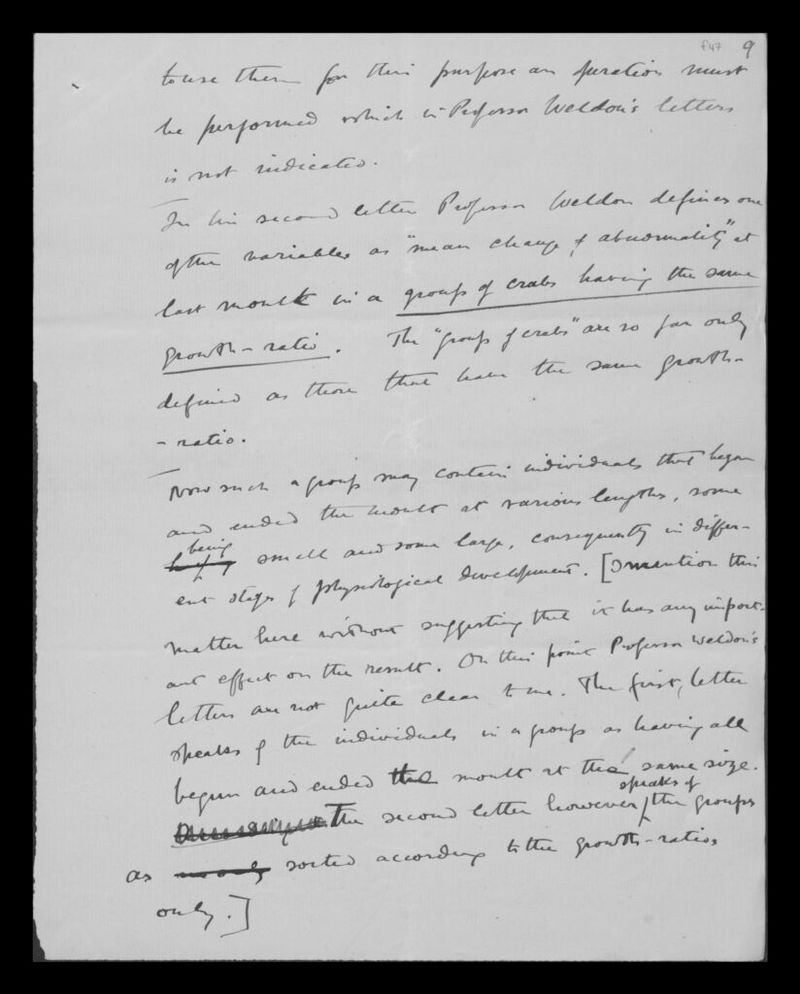 f47 9
to use them for this purpose an operation must
be performed which in Professor Weldon's letters
is not indicated.
In his second letter Professor Weldon defines one
of the variables as "mean change of abnormality" at
last moult in a group of crabs having the same
growth-ratio. The "group of crabs" are so far only
defined as those that have the same growth-
-ratio.
Now such a group may contain individuals that began
and ended the moult at various lengths, some
being
small and some large, consequently in differ-
ent stages of physiological development. [I mention this
matter here without suggesting that it has any import-
ant effect on the result. On this point Professor Weldon's
letters are not quite clear to me. The first letter
speaks of the individuals in a group as having all
begun and ended the moult at the same size.
speaks of
The second letter however the groups
as sorted according to the growth-ratios
only.]